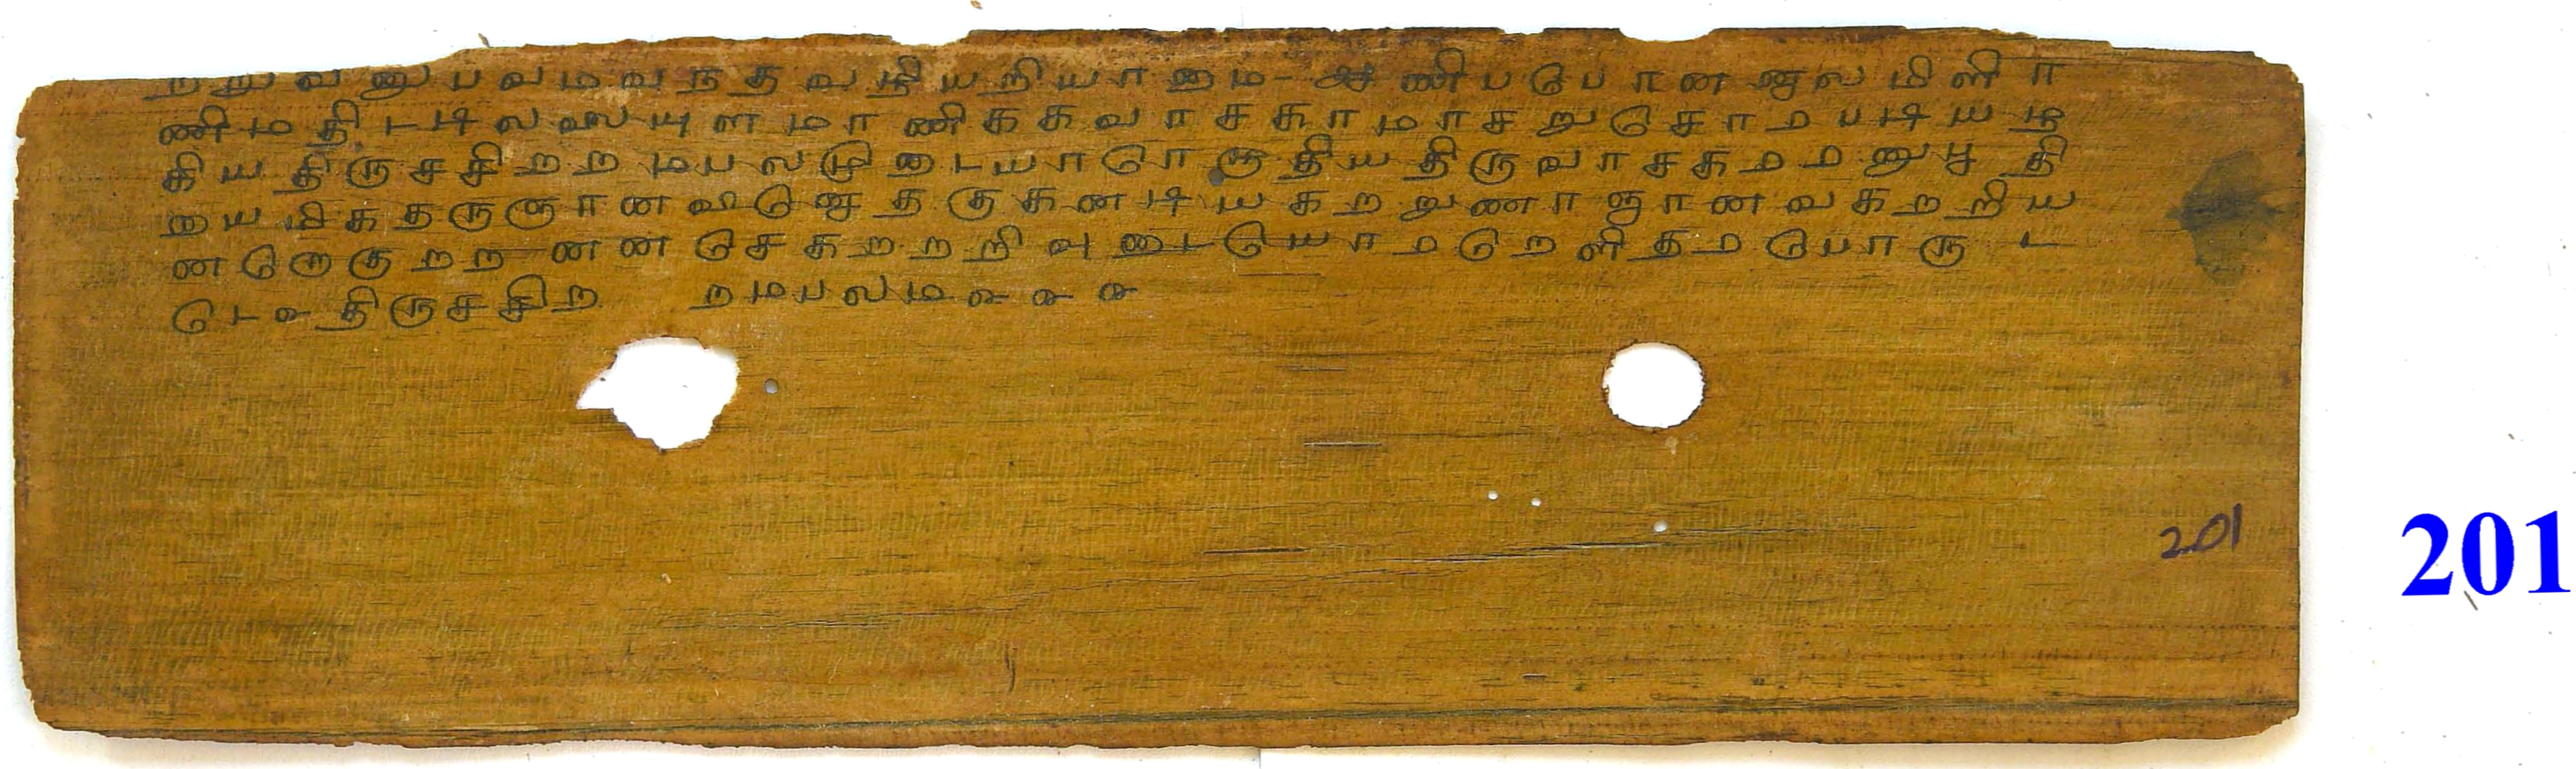 றறுவனுபவமவநதவழியறியானும- ஆணிபபொனனூலமிளிா
ணிமதிடடிலஙையுளமாணிககவாசகாமாசறுசொமபடியழ
கியதிருசசிறறமபலமுடையாரொருதியதிருவாசகமமனுபூதி
யைமிகதருஞானஙனூதகுகனடியகறறுணாஞானவகறறிய
னெறெகுறறணனசெகறறறிவுடையொமறெளிதமபொருட
டெ௨ திருசசிற றமபலம௨ ௨ ௨
201
201